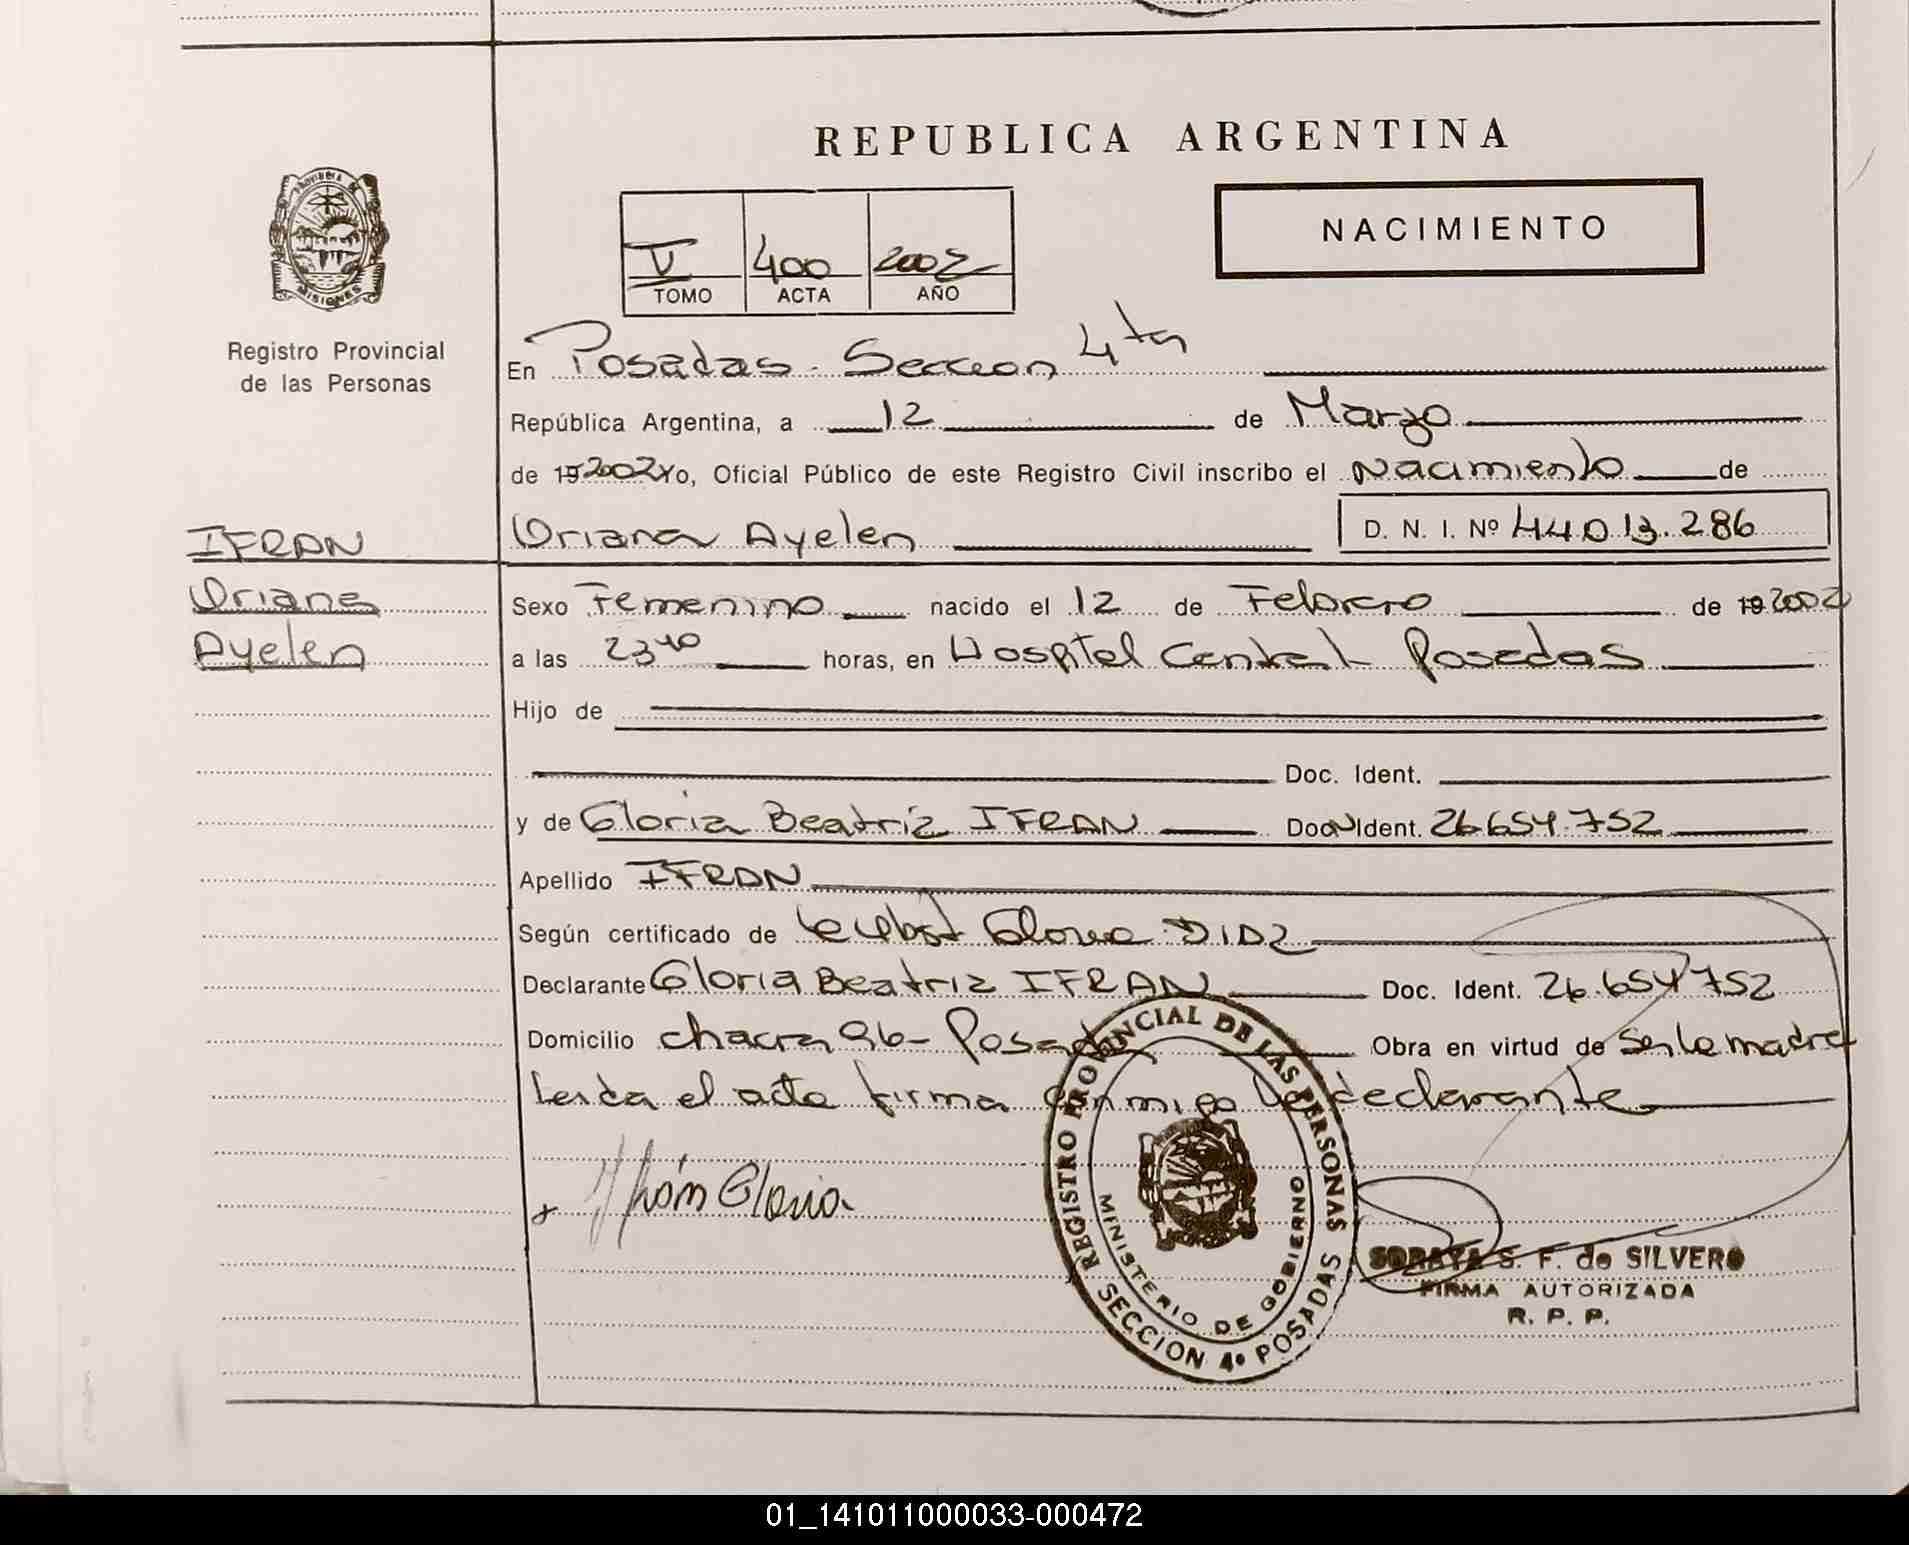 REPUBLICA ARGENTINA
PROVINCIA DE
MISIONES
Registro Provincial
de las Personas
V 400 2002
TOMO ACTA AÑO
NACIMIENTO
En Posadas - Seccion 4ta
República Argentina, a 12 de Marzo
de 19 2002 Yo, Oficial Público de este Registro Civil inscribo el Nacimiento de
IFRAN
Oriana Ayelen D. N. I. Nº 44.013.286
Oriana
Ayelen
Sexo Femenino nacido el 12 de Febrero de 19 2002
a las 23 40 horas, en Hospital Central Posadas
Hijo de
Doc. Ident.
y de Gloria Beatriz IFRAN Doc Ident. 26.654.752
Apellido IFRAN
Según certificado de DIAZ
Declarante Gloria Beatriz IFRAN Doc. Ident. 26.654752
Domicilio chacra 96 - Posadas Obra en virtud de Ser la madre
Leida el acta firma conmigo la declarante
Gloria
REGISTRO PROVINCIAL DE LAS PERSONAS
MINISTERIO DE GOBIERNO
SECCION 4º POSADAS
SORAYA S. F. de SILVERO
FIRMA AUTORIZADA
R. P. P.
01_141011000033-000472